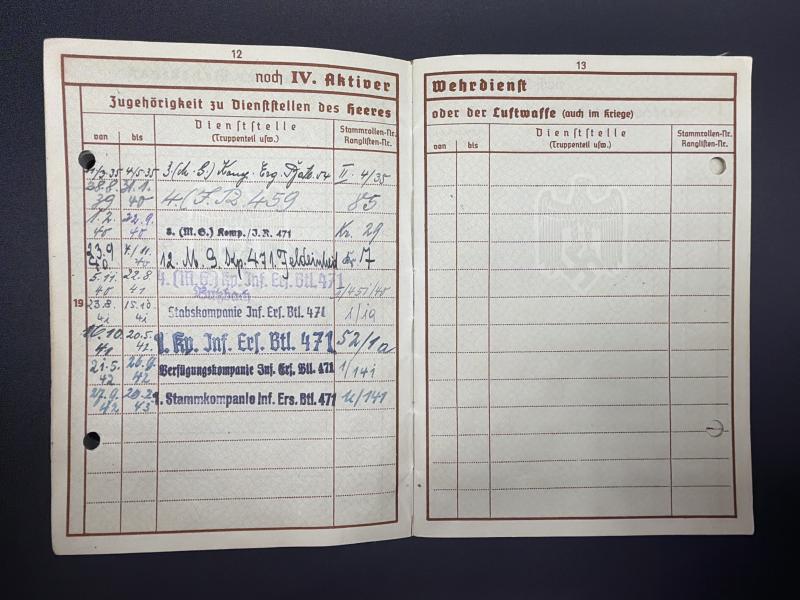 12
noch IV. Aktiver
Zugehörigkeit zu Dienststellen des Heeres
von bis Dienststelle (Truppenteil usw.) Stammrollen-Nr. Ranglisten-Nr.
4/5 35 3/ Erg. II. 4/35
28.8. 39 31.1. 40 4.(J.R. 459 85
1.2. 40 22.9. 40 8. (M.G.) Komp./J.R. 471 Kr. 29
23.9 40. 7./11. 40 12. M. G. Kp. 471. Feldeinheit 17
5.11. 40 22.8 41 4. (M.G.) Kp. Inf. Ers. Btl. 471
Butzbach
19 23.8. 41 15.10. 41 Stabskompanie Inf. Ers. Btl. 471 1/19
16.10. 41 20.5. 42 1. Kp. Inf. Ers. Btl. 471 52/1a
21.5. 42 26.9. 42 Verfügungskompanie Inf. Ers. Btl. 471 1/141
27.9. 42 43 1. Stammkompanie Inf. Ers. Btl. 471 /141
13
Wehrdienst
oder der Luftwaffe (auch im Kriege)
von bis Dienststelle (Truppenteil usw.) Stammrollen-Nr. Ranglisten-Nr.